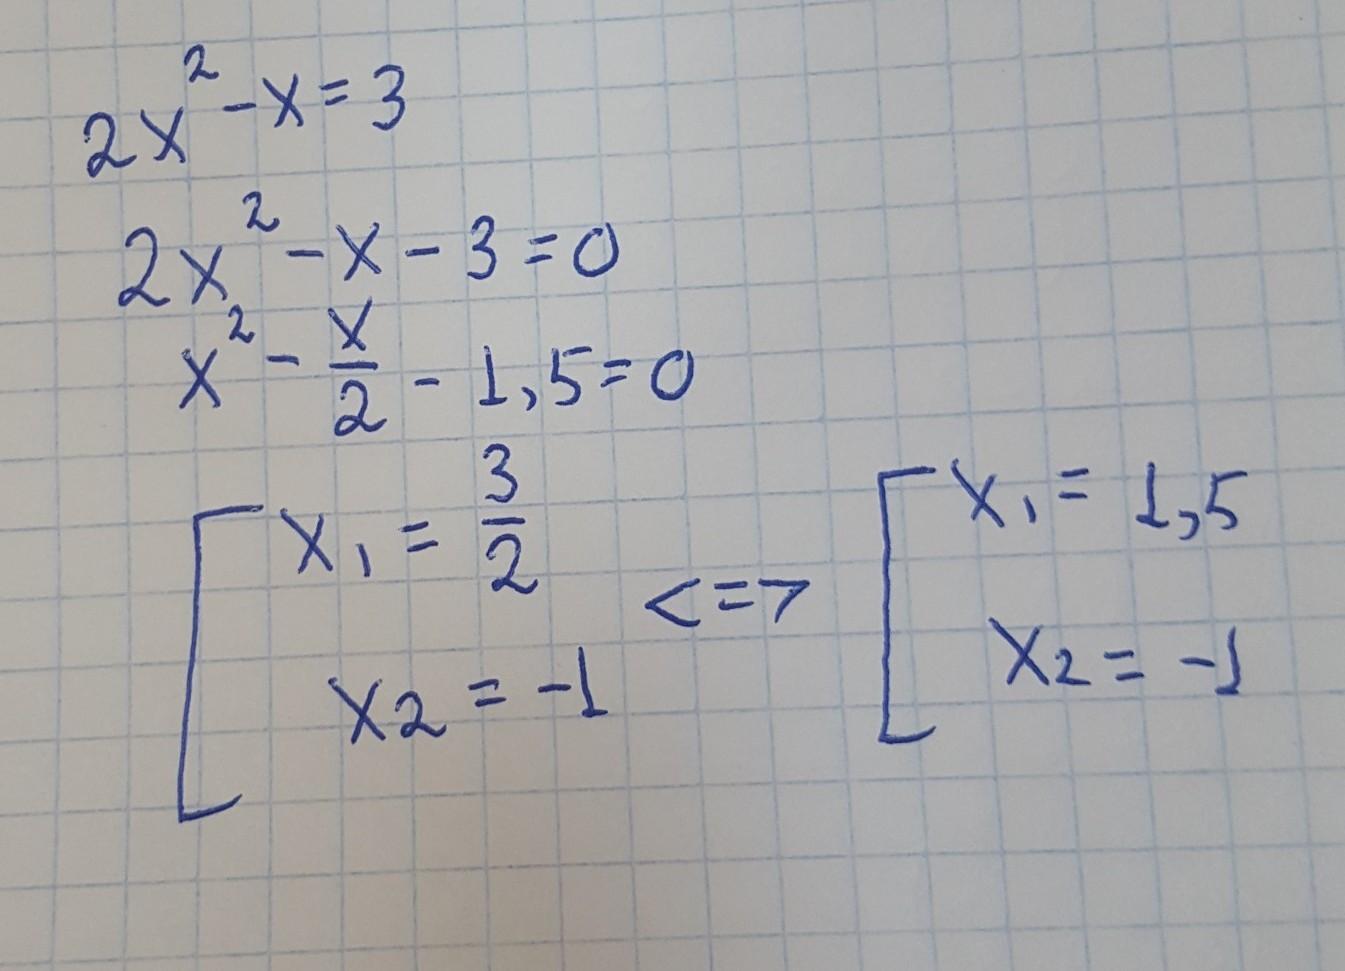 2x² - x = 3
2x² - x - 3 = 0
x² - x/2 - 1,5 = 0
[ x₁ = 3/2 <=> [ x₁ = 1,5
x₂ = -1 x₂ = -1